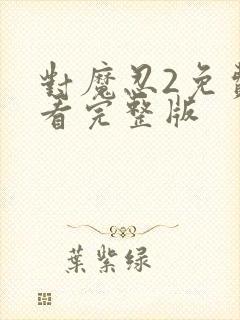 對魔忍2免費
看完整版
葉紫绿